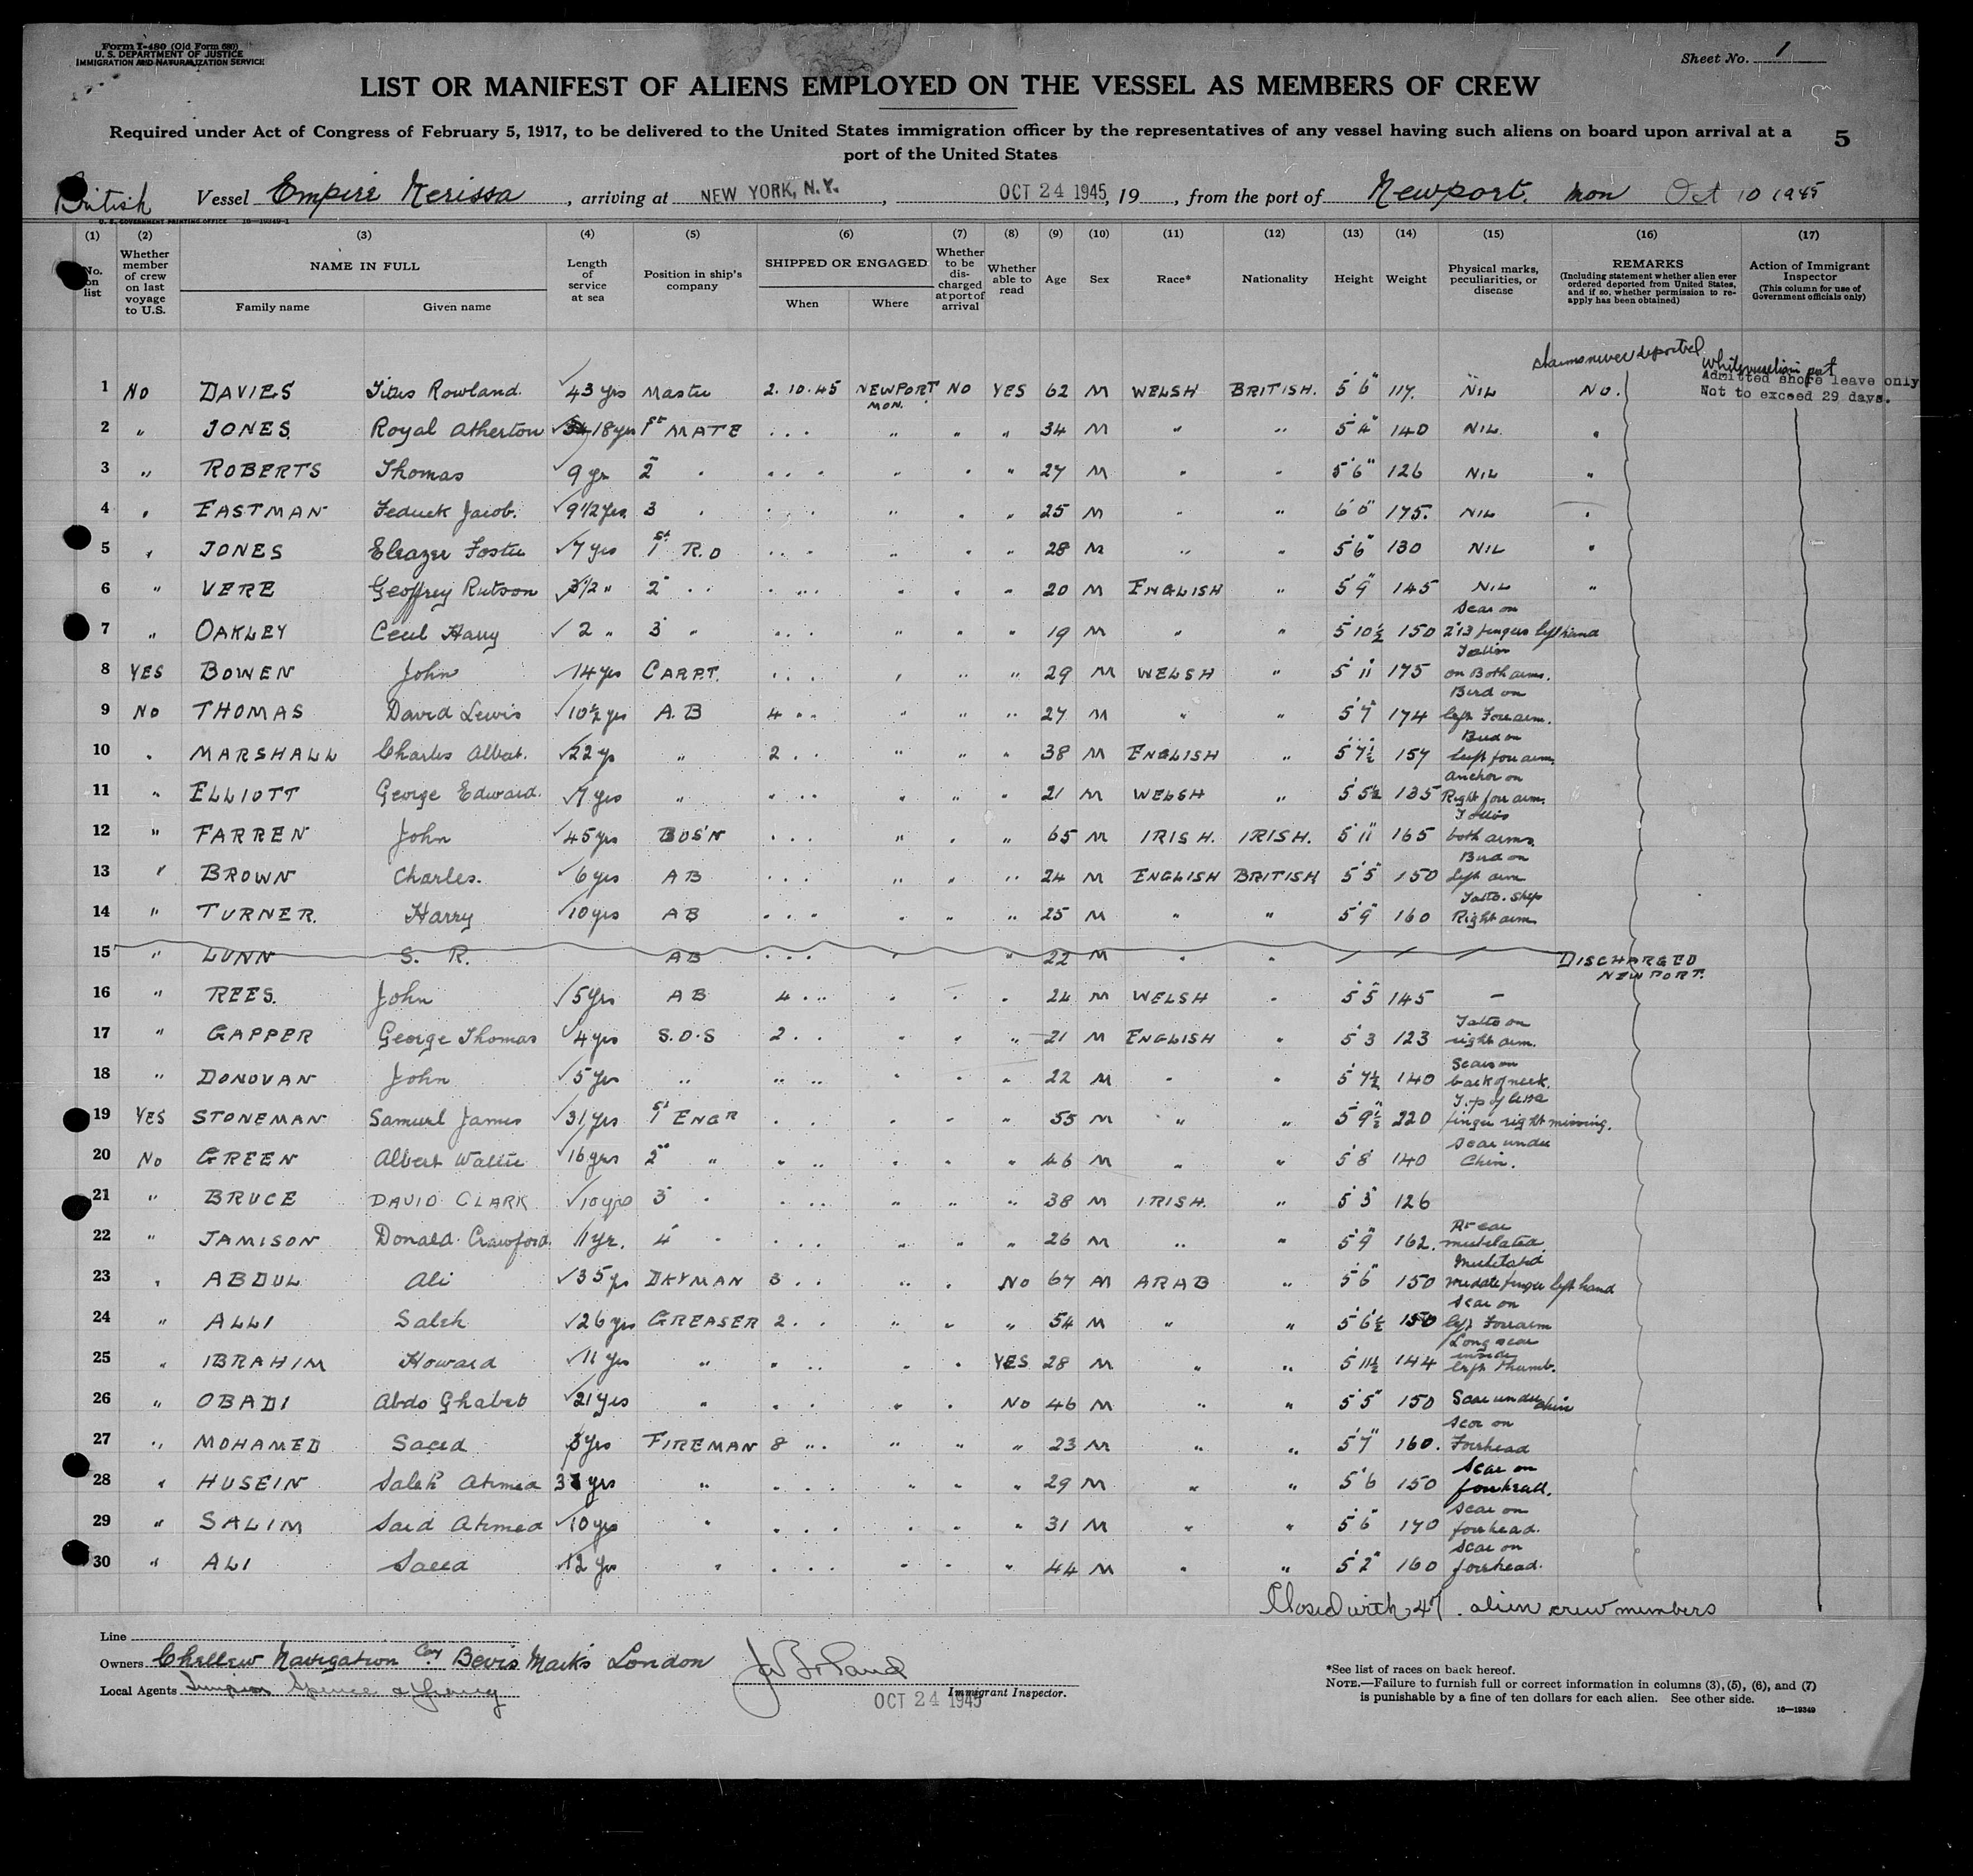 Form I-480 (Old Form 680)
U. S. DEPARTMENT OF JUSTICE
IMMIGRATION AND NATURALIZATION SERVICE
Sheet No. 1
LIST OR MANIFEST OF ALIENS EMPLOYED ON THE VESSEL AS MEMBERS OF CREW
Required under Act of Congress of February 5, 1917, to be delivered to the United States immigration officer by the representatives of any vessel having such aliens on board upon arrival at a
port of the United States
5
British Vessel Empire Nerissa, arriving at NEW YORK, N.Y., OCT 24 1945, 19, from the port of Newport. Mon Oct 10 1945
U. S. GOVERNMENT PRINTING OFFICE 16—19349-1
(1) (2) (3) (4) (5) (6) (7) (8) (9) (10) (11) (12) (13) (14) (15) (16) (17)
No. on list
Whether member of crew on last voyage to U.S.
NAME IN FULL
Family name Given name
Length of service at sea
Position in ship's company
SHIPPED OR ENGAGED
When Where
Whether to be discharged at port of arrival
Whether able to read
Age Sex Race* Nationality Height Weight
Physical marks, peculiarities, or disease
REMARKS
(Including statement whether alien ever ordered deported from United States, and if so, whether permission to re-apply has been obtained)
Action of Immigrant Inspector
(This column for use of Government officials only)
claims never deported
while vessel in port
Admitted shore leave only
Not to exceed 29 days.
1 NO DAVIES Titus Rowland. 43 yrs Master 2.10.45 NEWPORT MON. NO YES 62 M WELSH BRITISH. 5'6" 117. NIL NO.
2 " JONES Royal Atherton 18 yrs 1st MATE . . . " " " 34 M " " 5'4" 140 NIL. "
3 " ROBERTS Thomas 9 yr 2 " . . . " " " 27 M " " 5'6" 126 NIL "
4 " EASTMAN Jacob. 9 1/2 yrs 3 " . . . " " " 25 M " " 6'0" 175. NIL "
5 " JONES Eleazer Foster 7 yrs 1st R.O . . . " " " 28 M " " 5'6" 130 NIL "
6 " VERE Geoffrey Rutson 3 1/2 " 2 " . . . " " " 20 M ENGLISH " 5'9" 145 NIL "
7 " OAKLEY Cecil Harry 2 " 3 " . . . " " " 19 M " " 5 10½ 150 Scar on 2 & 3 fingers left hand
8 YES BOWEN John 14 yrs CARPT. . . . " " " 29 M WELSH " 5'11 175 on Both arms.
9 NO THOMAS David Lewis 10½ yrs A.B 4 " " " " " 27 M " " 5'7" 174 Bird on left Forearm.
10 " MARSHALL Charles Albert. 22 yr " 2 . . " " " 38 M ENGLISH " 5'7½ 157 Bird on left forearm.
11 " ELLIOTT George Edward. 7 yrs " . . . " " " 21 M WELSH " 5 5½ 135 anchor on Right forearm.
12 " FARREN John 45 yrs BOS'N . . . " " " 65 M IRISH. IRISH. 5'11 165 both arms.
13 " BROWN Charles. 6 yrs AB . . . " " " 24 M ENGLISH BRITISH 5'5" 150 Bird on left arm
14 " TURNER. Harry 10 yrs AB . . . " " " 25 M " " 5'9" 160 Tatto. Ship Right arm
15 " LUNN S. R. AB . . . " " 22 M " " / / / DISCHARGED NEWPORT.
16 " REES. John 5 yrs AB 4 . . " " " 24 M WELSH " 5'5 145 —
17 " GAPPER George Thomas 4 yrs S.O.S 2 . . " " " 21 M ENGLISH " 5'3 123 Tatto on right arm.
18 " DONOVAN John 5 yrs " " . . " " " 22 M " " 5'7½ 140 Scars on back of neck.
19 YES STONEMAN Samuel James 31 yrs 1st ENGR . . . " " " 55 M " " 5'9½ 220 Tip of little finger right missing.
20 NO GREEN Albert Walter 16 yrs 2nd " . . . " " " 46 M " " 5'8 140 Scar under Chin.
21 " BRUCE DAVID CLARK 10 yrs 3 " . . . " " " 38 M IRISH. " 5'3" 126
22 " JAMISON Donald Crawford. 1 yr. 4 " . . . " " " 26 M " " 5'9" 162. Rt ear mutilated
23 " ABDUL Ali 35 yrs DKYMAN 3 . . " " NO 67 M ARAB " 5'6" 150 Mutilated middle finger left hand
24 " ALLI Saleh 26 yrs GREASER 2 . . " " " 54 M " " 5'6½ 150 Scar on left Forearm
25 " IBRAHIM Howard 11 yrs " . . . " " YES 28 M " " 5 11½ 144 Long scar inside left thumb.
26 " OBADI Abdo 21 yrs " . . . " " NO 46 M " " 5'5" 150 Scar under chin
27 " MOHAMED Saeed 3 yrs FIREMAN 8 . . " " " 23 M " " 5'7" 160. Scar on Forehead
28 " HUSEIN Saleh Ahmed yrs " . . . " " " 29 M " " 5'6 150 Scar on forehead.
29 " SALIM Said Ahmed 10 yrs " . . . " " " 31 M " " 5'6" 170 Scar on forehead.
30 " ALI Saeed 12 yrs " . . . " " " 44 M " " 5'2" 160 Scar on forehead.
Closed with 47. alien crew members
Line
Owners Chellew Navigation Coy Bevis Marks London
Local Agents Simpson Spence & Young
OCT 24 1945
Immigrant Inspector.
*See list of races on back hereof.
NOTE.—Failure to furnish full or correct information in columns (3), (5), (6), and (7)
is punishable by a fine of ten dollars for each alien. See other side.
16—19349